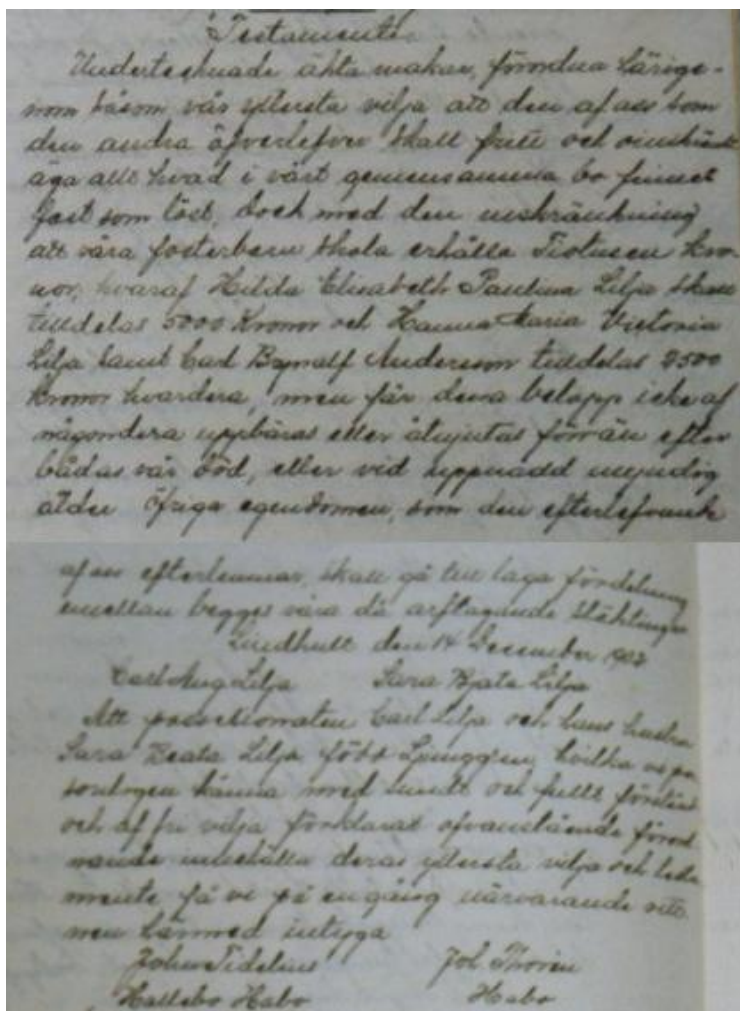 Testamente.
Undertecknade äkta makar, förordna härige-
nom såsom vår yttersta vilja att den af oss som
den andra öfverlefver skall fritt och oinskränkt
äga allt hvad i vårt gemensamma bo finnes
fast som löst, dock med den inskränkning
att våra fosterbarn skola erhålla Tiotusen kro-
nor, hvaraf Hilda Elisabeth Paulina Lilja skall
tilldelas 5000 Kronor och Hanna Maria Victoria
Lilja samt Carl Andersson tilldelas 2500
Kronor hvardera, men får dessa belopp icke af
någondera uppbäras eller åtnjutas förrän efter
bådas vår död, eller vid uppnådd myndig
ålder öfriga egendomen, som den efterlefvande
af oss efterlemnar, skall gå till laga fördelning
emellan begges våra då arftagande släktingar
Lindhult den 14 December 1902
Carl Aug Lilja Sara Beata Lilja
Att possessionaten Carl Lilja och hans hustru
Sara Beata Lilja född Ljunggren, hvilka vi per
sonligen känna med sundt och fullt förstånd
och af fri vilja förklarat ofvanstående förord
nande innehålla deras yttersta vilja och testa
mente få vi på en gång närvarande vitt
nen härmed intyga
John Tidelius Joh. Thorin
Hallebo Habo Habo